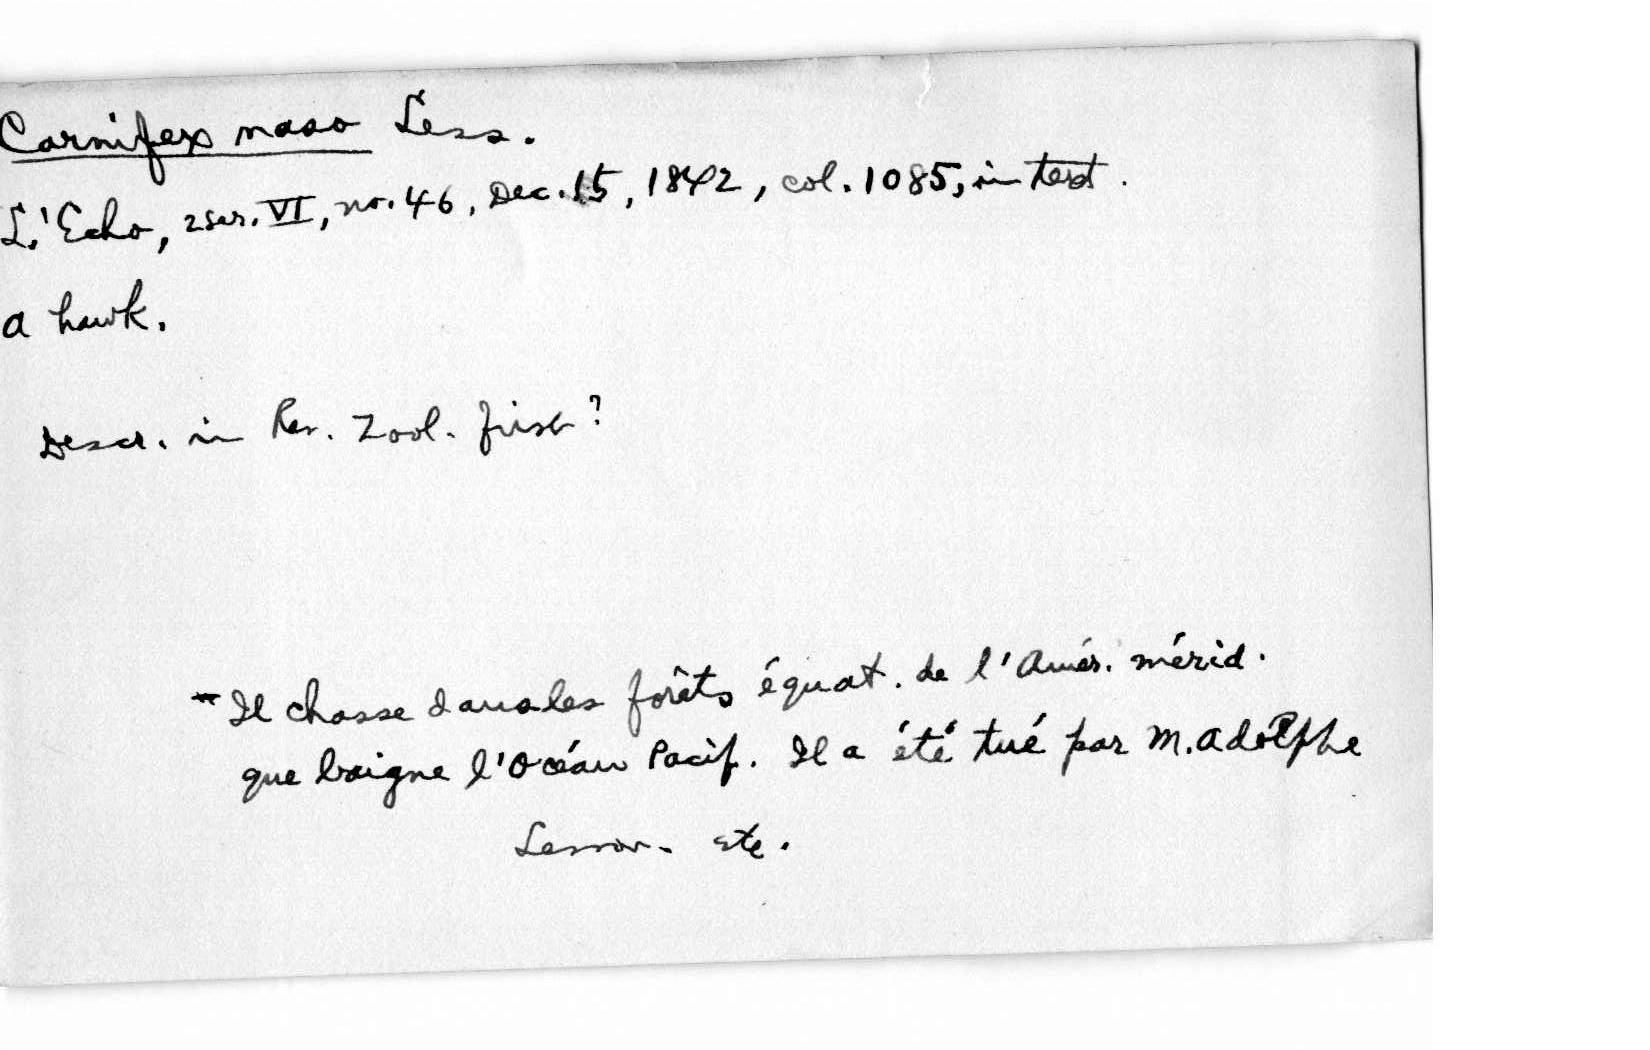 Carnifex naso Less.
L.'Echo, 2 ser. VI, no. 46, Dec. 15, 1842, col. 1085, in text.
a hawk.
Descr. in Rev. Zool. first?
* Il chasse dans les forêts équat. de l'Amér. mérid.
que baigne l'Océan Pacif. Il a été tué par M. Adolphe
Lesson. etc.